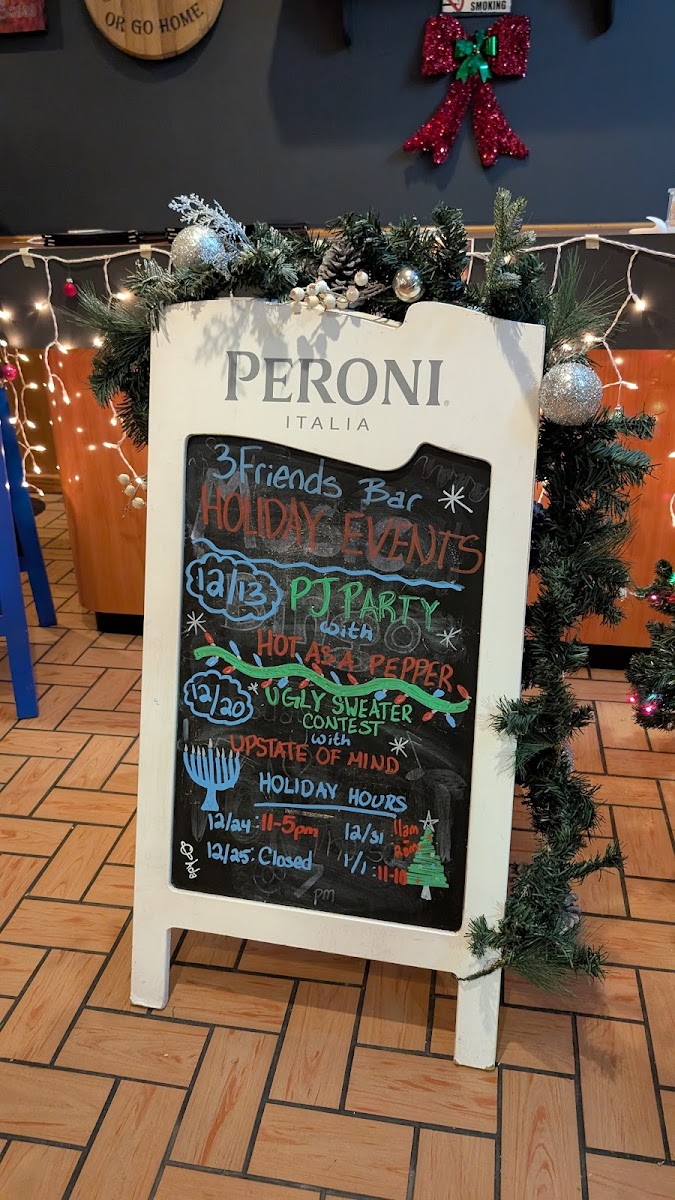 OR GO HOME
SMOKING
PERONI
ITALIA
3 Friends Bar
HOLIDAY EVENTS
12/13 PJ PARTY
with
HOT AS A PEPPER
12/20 UGLY SWEATER
CONTEST
with
UPSTATE OF MIND
HOLIDAY HOURS
12/24: 11-5pm
12/25: Closed
12/31 11am
1/1: 11-10
pm